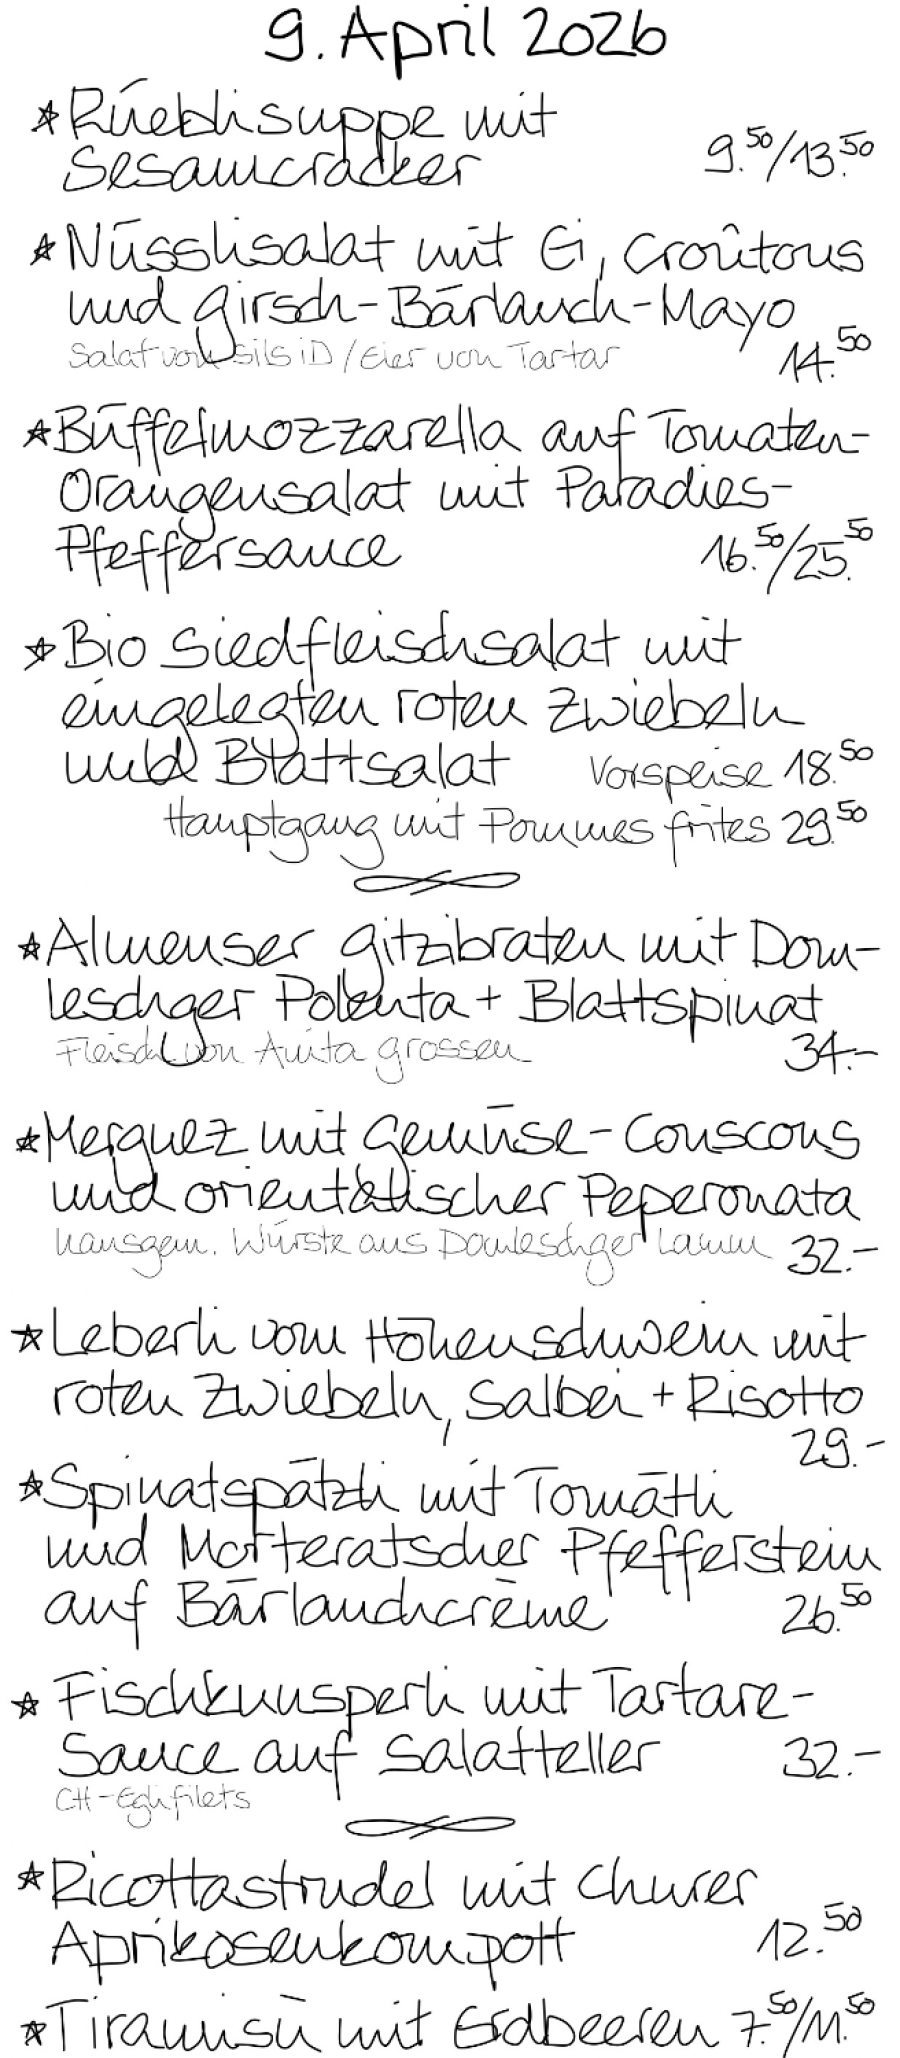 9. April 2026
* Rüeblisuppe mit
Sesamcracker 9.50/13.50
* Nüsslisalat mit Ei, Croûtons
und Girsch-Bärlauch-Mayo
Salat von Sils iD / Eier von Tartar 14.50
* Büffelmozzarella auf Tomaten-
Orangensalat mit Paradies-
Pfeffersauce 16.50/25.50
* Bio Siedfleischsalat mit
eingelegten roten Zwiebeln
und Blattsalat Vorspeise 18.50
Hauptgang mit Pommes frites 29.50
* Almenser Gitzibraten mit Dom-
leschger Polenta + Blattspinat
Fleisch von Anita Grossen 34.-
* Merguez mit Gemüse-Couscous
und orientalischer Peperonata
hausgem. Würste aus Domleschger Lamm 32.-
* Leberli vom Höhenschwein mit
roten Zwiebeln, Salbei + Risotto
29.-
* Spinatspätzli mit Tomätli
und Morteratscher Pfefferstein
auf Bärlauchcrème 26.50
* Fischknusperli mit Tartare-
Sauce auf Salatteller 32.-
CH-Eglifilets
* Ricottastrudel mit Churer
Aprikosenkompott 12.50
* Tiramisù mit Erdbeeren 7.50/11.50